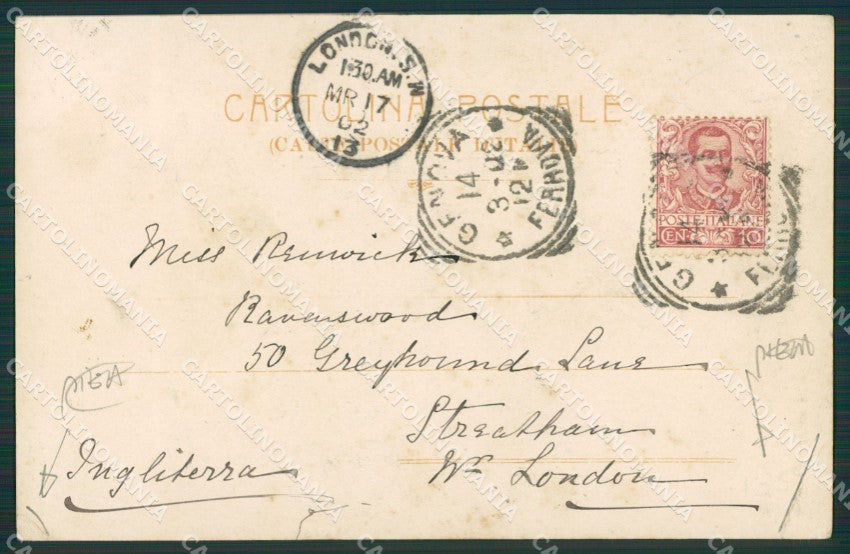 LONDON. S.W
1.30.AM
MR 17
02
13
CARTOLINA POSTALE
(CARTE POSTALE D'ITALIE)
GENOVA
14
3-02
12 M
FERROVIA
POSTE ITALIANE
CENT. 10
Miss Renwick
Ravenswood
50 Greyhound Lane
Streatham
London
Ingliterra
CARTOLINOMANIA